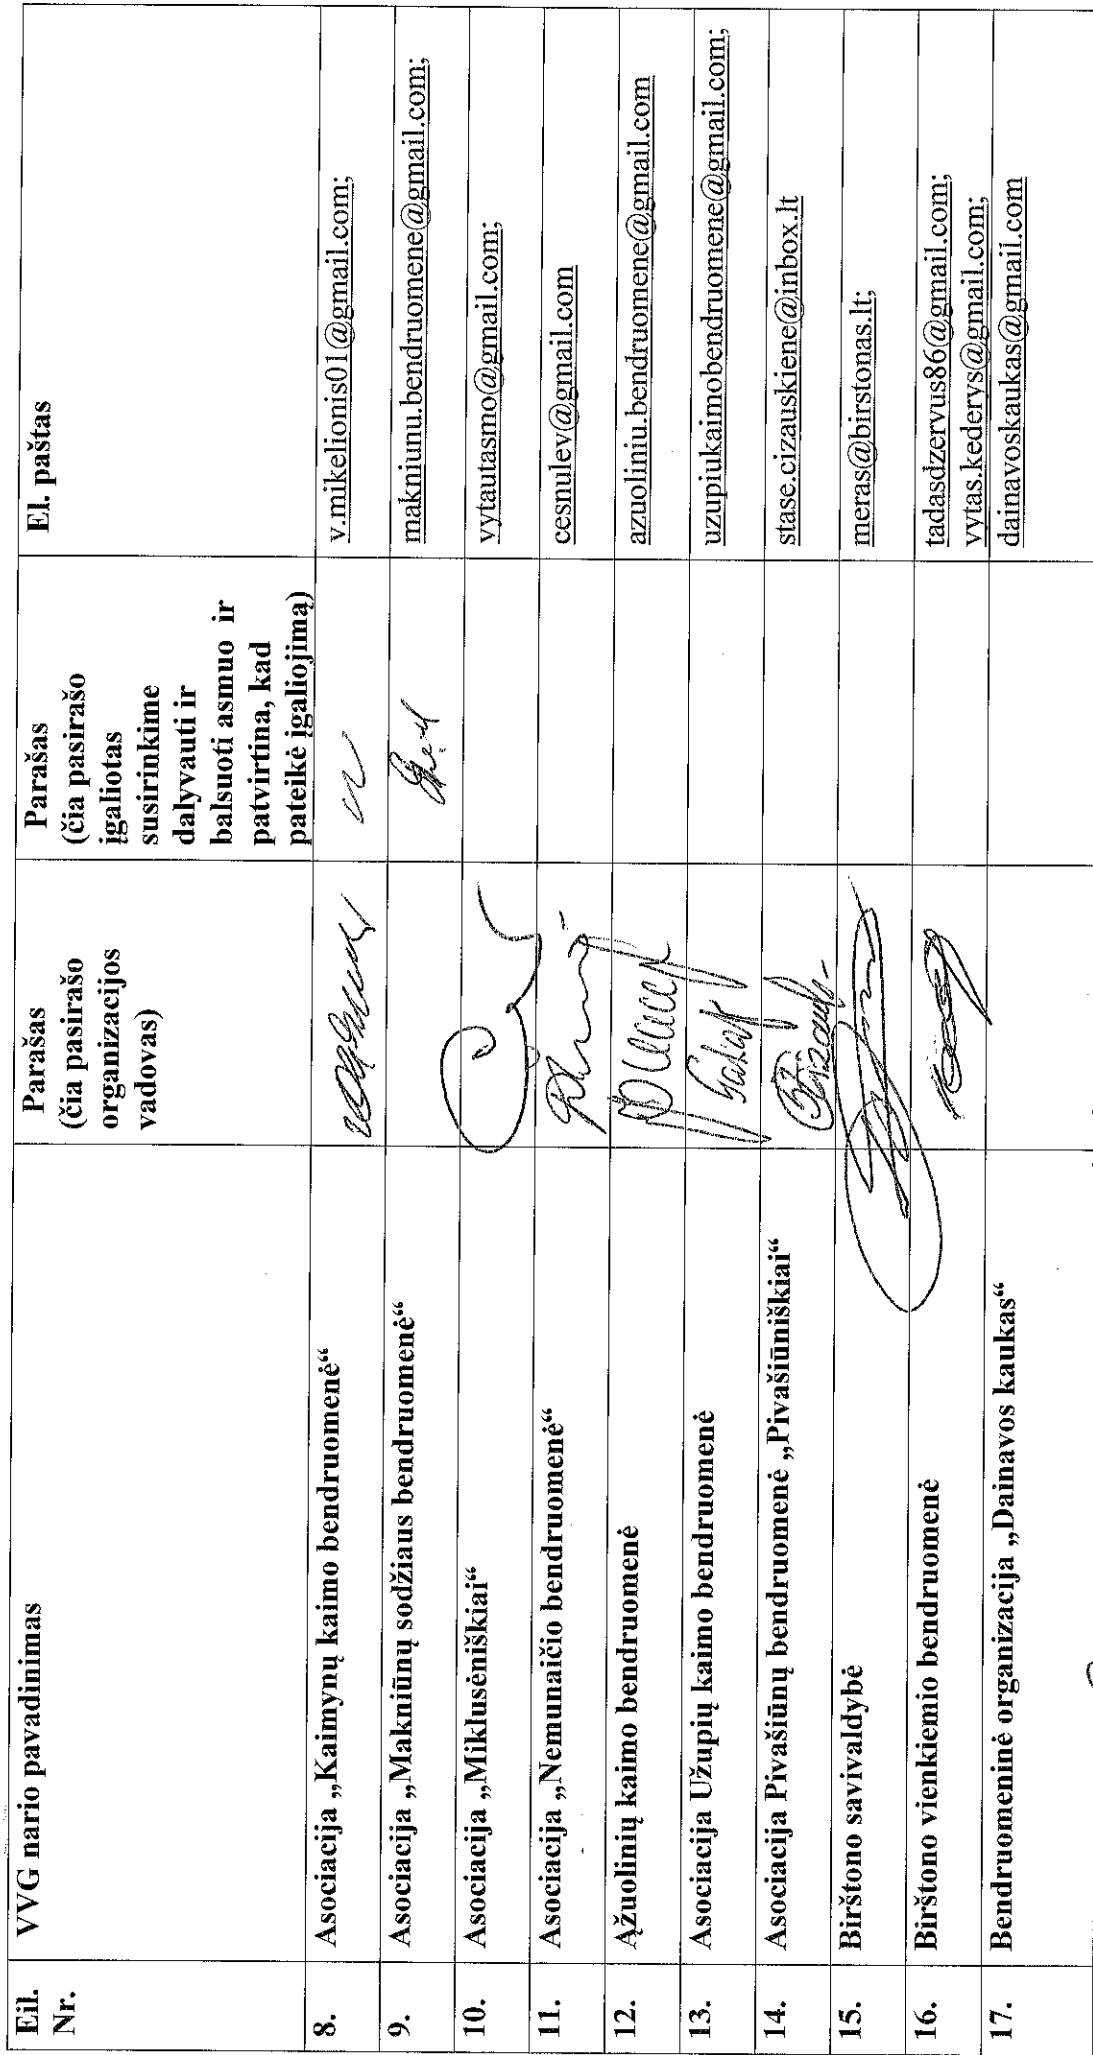 Eil. Nr.
VVG nario pavadinimas
Parašas
(čia pasirašo
organizacijos
vadovas)
Parašas
(čia pasirašo
įgaliotas
susirinkime
dalyvauti ir
balsuoti asmuo ir
patvirtina, kad
pateikė įgaliojimą)
El. paštas
8. Asociacija „Kaimynų kaimo bendruomenė“ v.mikelionis01@gmail.com;
9. Asociacija „Makniūnų sodžiaus bendruomenė“ makniunu.bendruomene@gmail.com;
10. Asociacija „Miklusėniškiai“ vytautasmo@gmail.com;
11. Asociacija „Nemunaičio bendruomenė“ cesnulev@gmail.com
12. Ąžuolinių kaimo bendruomenė azuoliniu.bendruomene@gmail.com
13. Asociacija Užupių kaimo bendruomenė uzupiukaimobendruomene@gmail.com;
14. Asociacija Pivašiūnų bendruomenė „Pivašiūniškiai“ stase.cizauskiene@inbox.lt
15. Birštono savivaldybė meras@birstonas.lt;
16. Birštono vienkiemio bendruomenė tadasdzervus86@gmail.com;
vytas.kederys@gmail.com;
17. Bendruomeninė organizacija „Dainavos kaukas“ dainavoskaukas@gmail.com